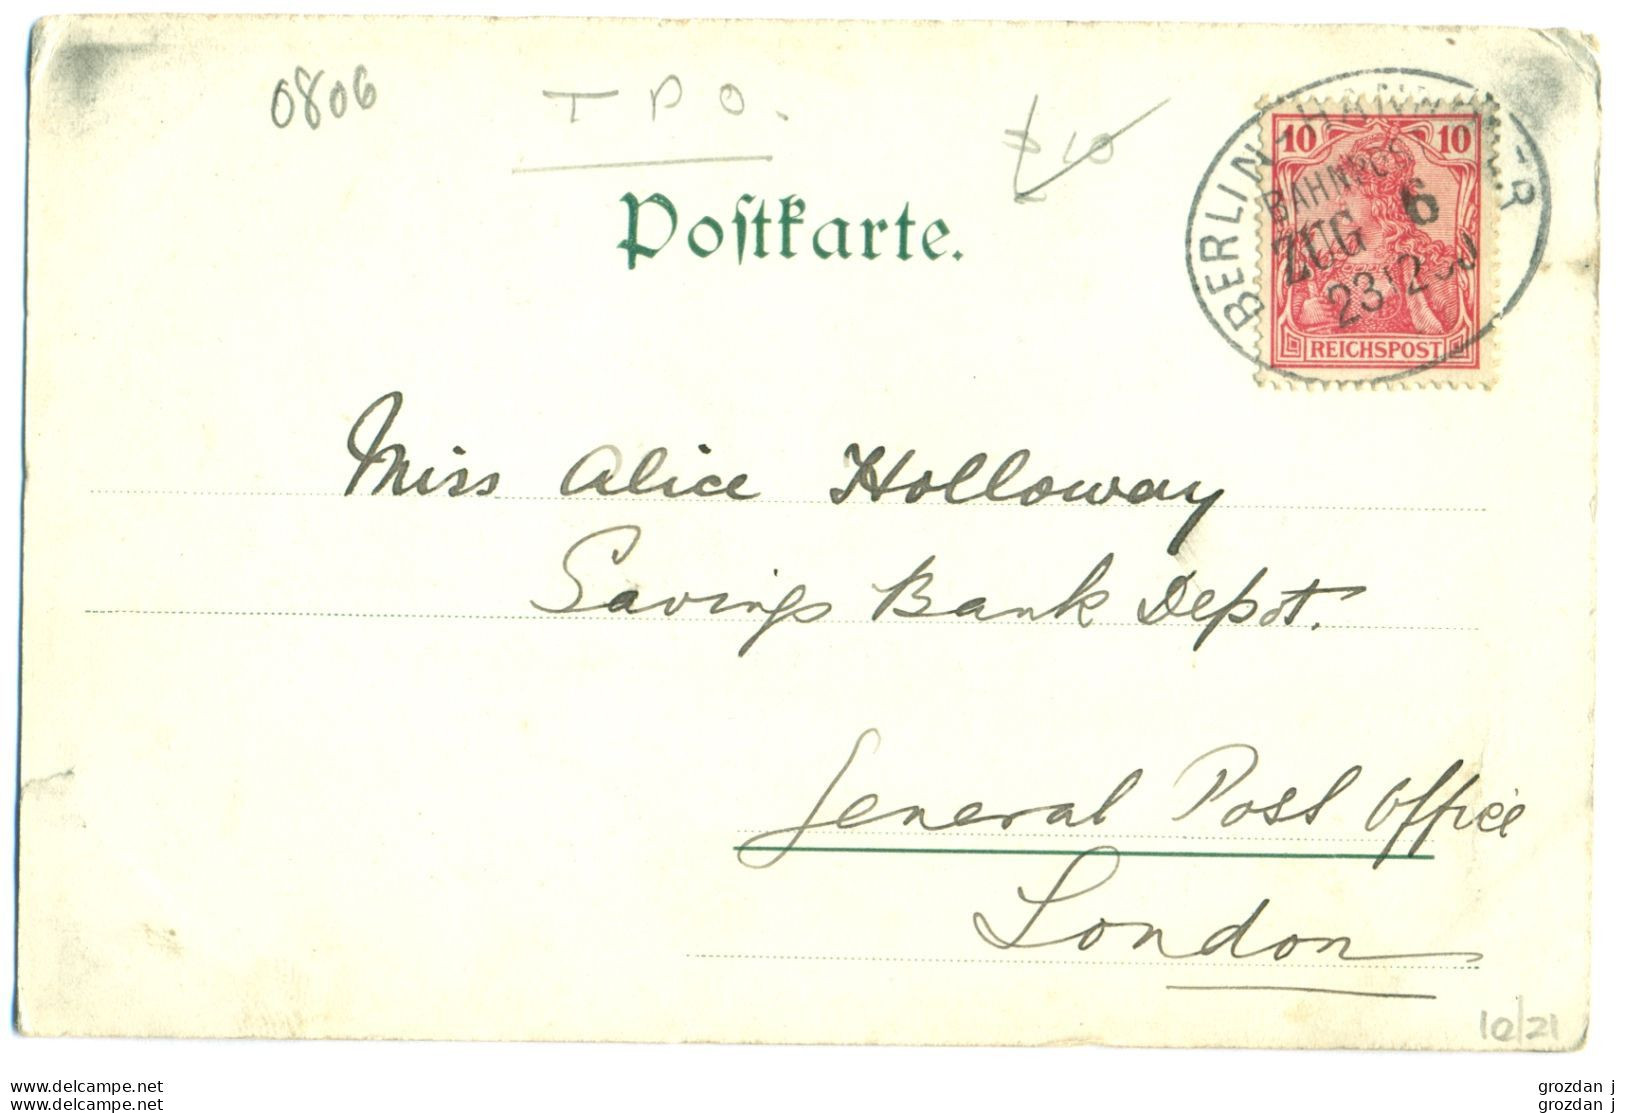 0806
T P O.
£10
Postkarte.
10 10
REICHSPOST
BERLIN-HANNOVER
BAHNPOST
ZUG 6
23 12 00
Miss Alice Holloway
Savings Bank Depot.
General Post Office
London
10/21
www.delcampe.net grozdan j
www.delcampe.net grozdan j